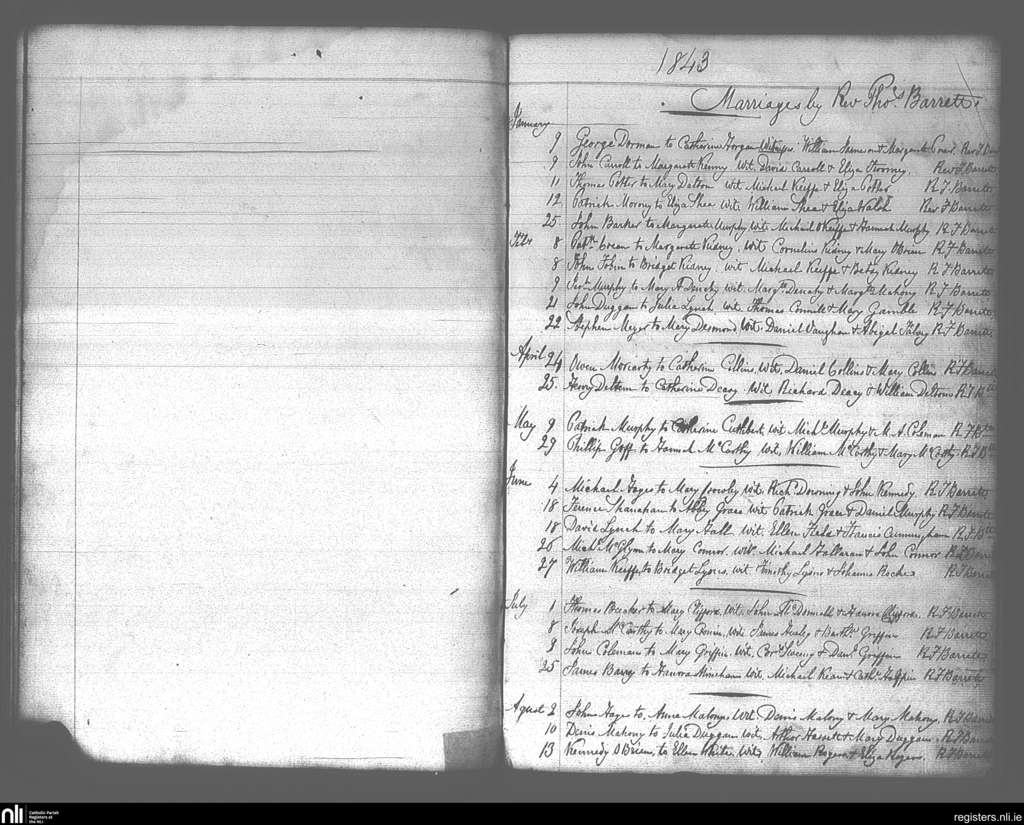 1843
Marriages by Rev Thos. Barrett
January
9 George Dorman to Catherine Horgan Witnesses William & Margaret
9 John Carroll to Margarete Kenny wit David Carroll & Eliza Rev T Barrett
11 Thomas Potter to Mary Dalton wit Michael Keiffe & Eliza Potter R. T. Barrett
12 Patrick Morony to Eliza Shea wit William Shea & Eliza Walsh Rev T Barrett
25 John Barker to Margarete Murphy wit Michael O Keiffe & Hannah Murphy R T Barrett
Feb 8 to Margarete Kidney wit Cornelius Kidney & Mary O Brien R T Barrett
8 John Tobin to Bridget Kidney wit Michael Keiffe & Betsy Kidney R T Barrett
9 Murphy to Mary A Denehy wit Margt. Denehy & Margte Mahony R T Barrett
21 John Duggan to Julia Lynch wit Thomas Connell & Mary Gamble R T Barrett
22 Stephen to Mary Desmond Wit Daniel Vaughan & Abigel R T Barrett
April 24 Owen Moriarty to Catherine Collins wit Daniel Collins & Mary Collins R T Barrett
25 Henry to Catherine Deasy Wit Richard Deasy & William R T
May 9 Patrick Murphy to Catherine Cuthbert wit Michl. Murphy & M. A. Coleman R T
29 Phillip Goff to Hannah McCarthy wit William McCarthy & Mary McCarthy R T
June
4 Michael Hayes to Mary wit Richd. Downing & John Kennedy R T Barrett
18 Terence Shanahan to Abby Grace wit Patrick Grace & Daniel Murphy R T Barrett
18 David Lynch to Mary Hall wit Ellen & Francis Cunningham R T
26 Michl. McGlynn to Mary Connor wit Michael Halloran & John Connor R T
27 William Keiffe to Bridget Lyons wit Timothy Lyons & Johanna Roche R T
July 1 Thomas to Mary wit John McDonnell & Hanora R T Barrett
8 Joseph McCarthy to Mary Cronin wit James Healy & Barthw. Griffin R T Barrett
9 John Coleman to Mary Griffin wit Cors. Sweeny & Danl. Griffin R T Barrett
25 James Barry to Hanora wit Michael & Cathe. Halpin R T Barrett
Agust 2 John Hayes to Anna Malony wit Denis Malony & Mary Mahony R T
10 Denis Mahony to Julia Duggan wit Arthur & Mary Duggan R T
13 Kennedy O Brien to Ellen White wit William Rogers & Eliza Rogers R T
nli
Catholic Parish
Registers at
the NLI
registers.nli.ie